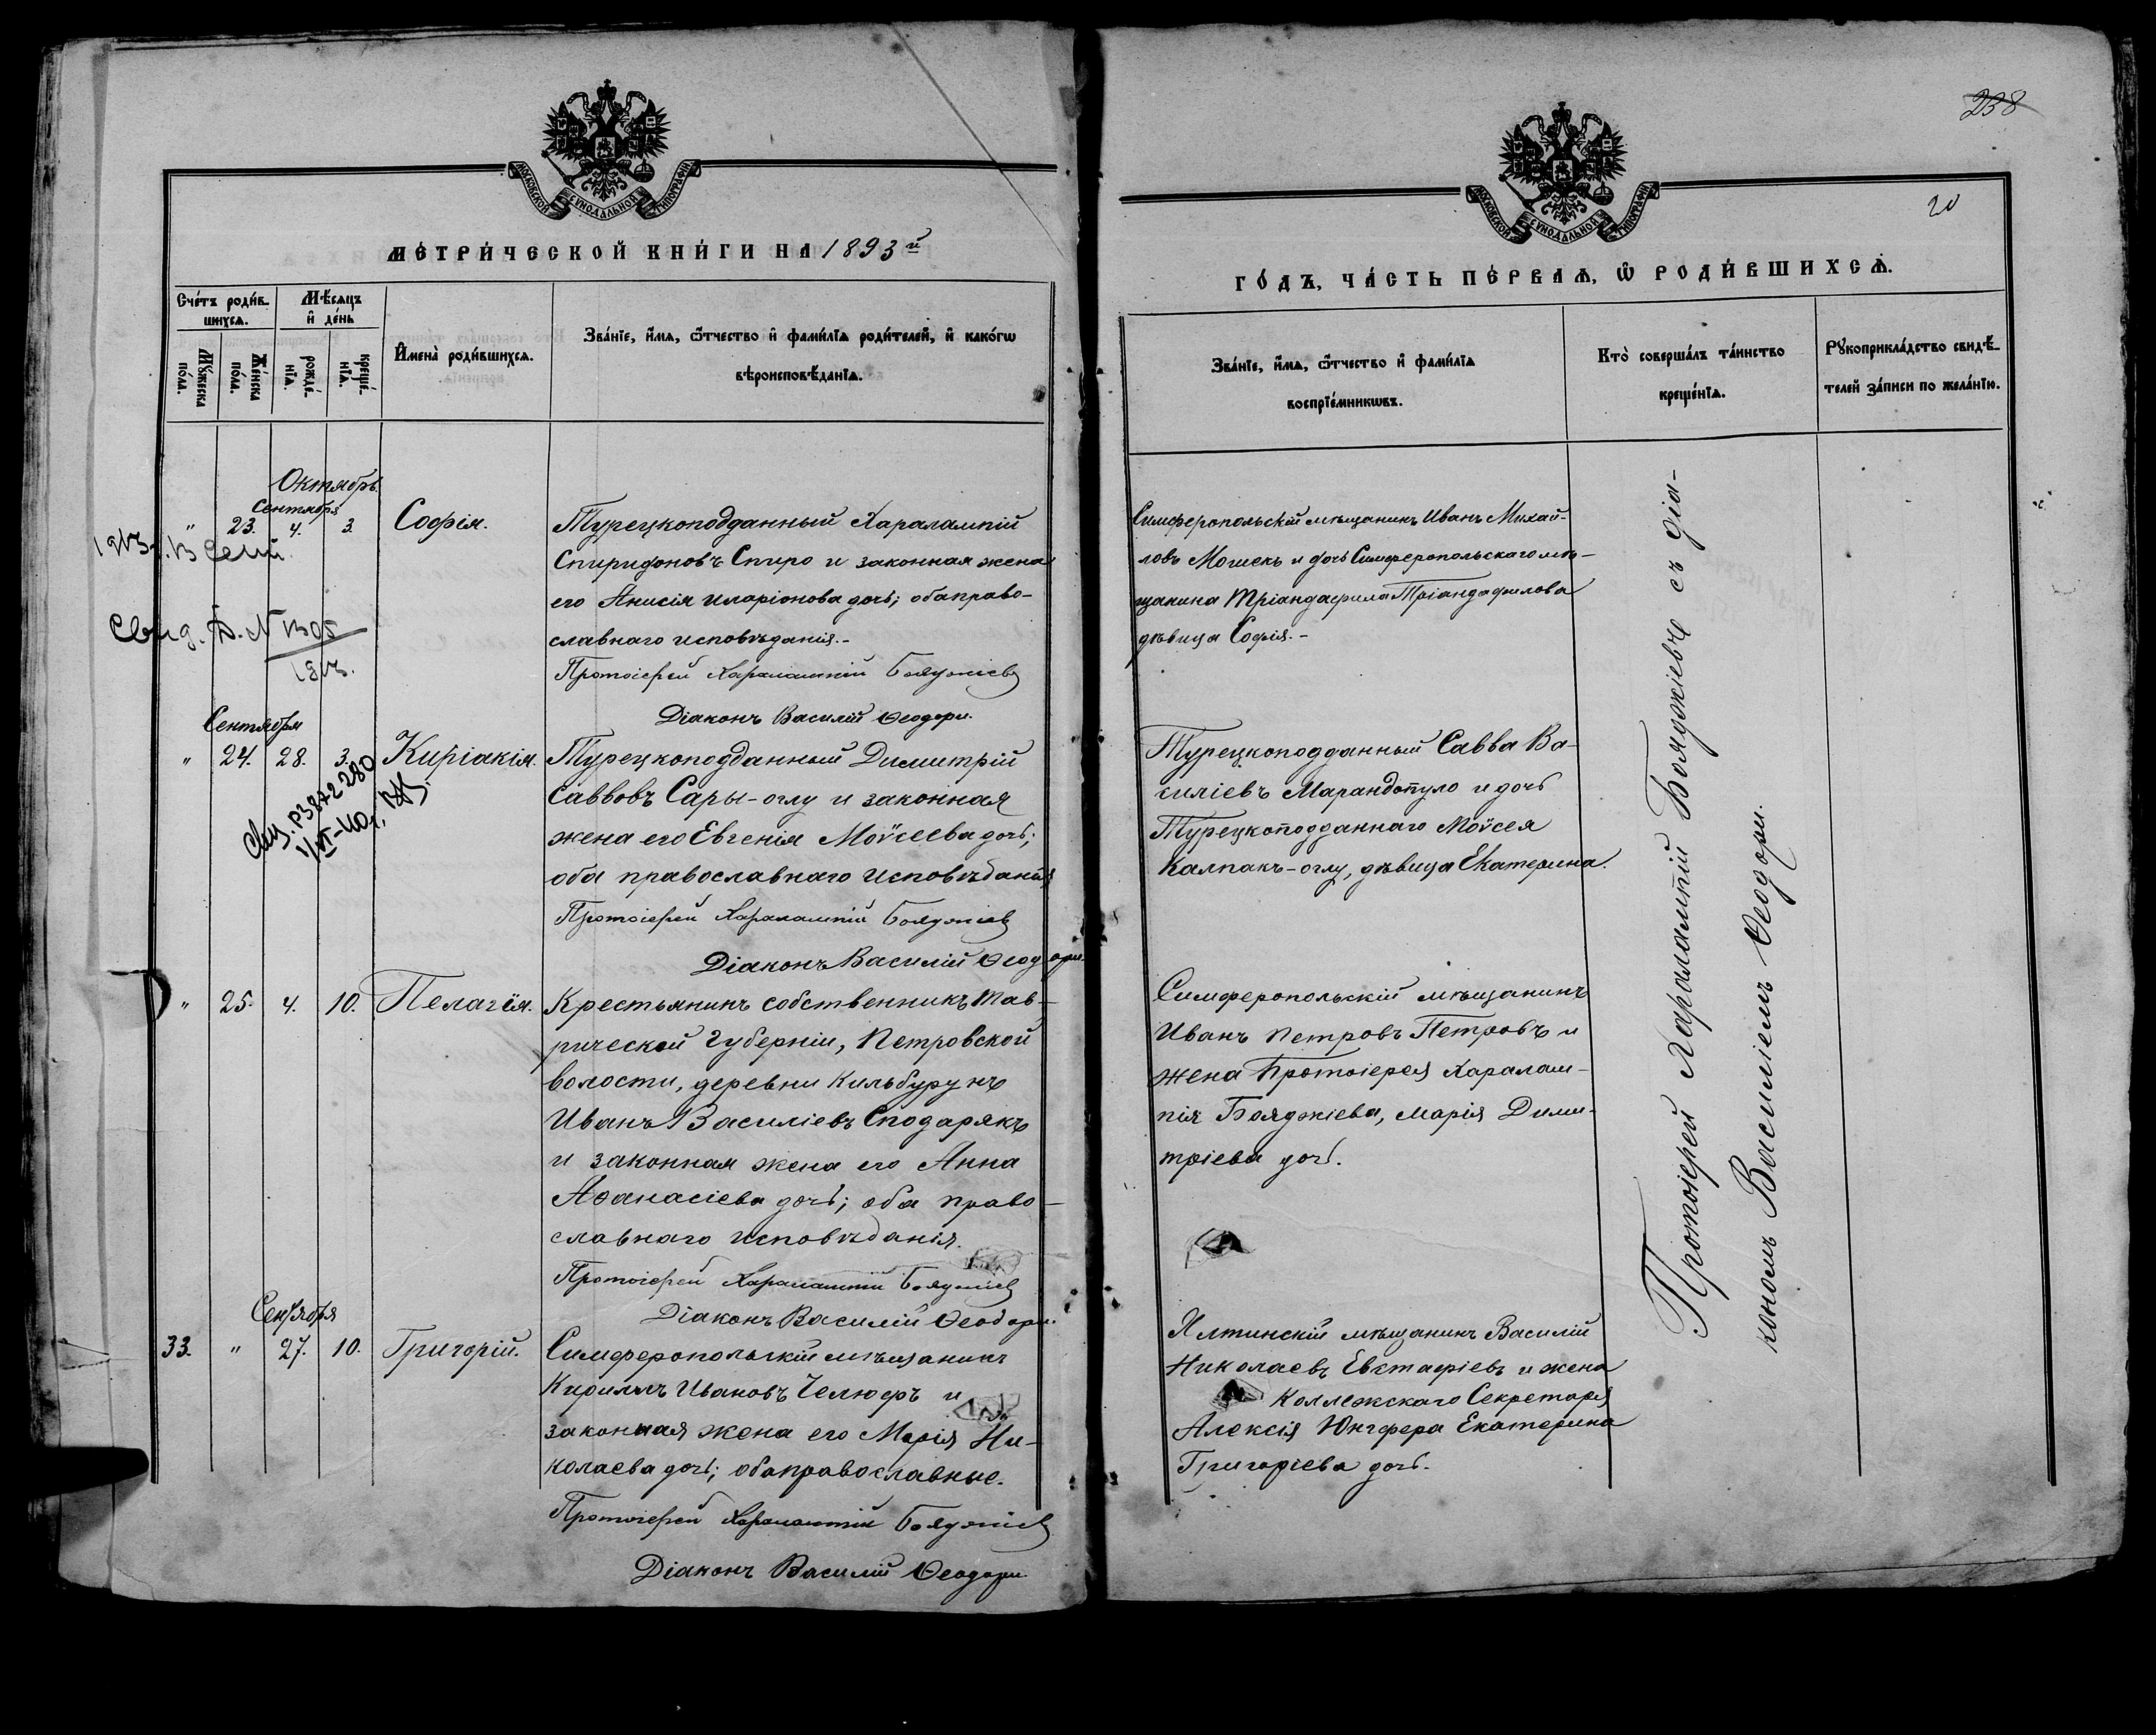 МОСКОВСКОЙ СѴНОДАЛЬНОЙ ТИПОГРАФІИ
МЕТРИ́ЧЕСКОЙ КНИ́ГИ НА 1893 й
Сче́тъ роди́в-
шихсѧ.
Мѣ́сѧцъ
и҆ де́нь
Мꙋ́жеска
по́ла.
Же́нска
по́ла.
рожде́-
нїѧ.
креще́-
нїѧ.
И҆мена̀ роди́вшихсѧ.
Зва́нїе, и҆́мѧ, ѻ҆́тчество и҆ фами́лїѧ роди́телей, и҆ како́гѡ
вѣроисповѣ́данїѧ.
Октябрь.
Сентября
" 23. 4. 3. Софія.
Турецкоподданный Харалампій
Спиридоновъ Спиро и законная жена
его Анисія Иларіонова дочь; оба право-
славнаго исповѣданія.-
Протоіерей Харалампій Бояджіевъ
Діаконъ Василій Ѳеодори.
Свид. N 1305
Сентября
" 24. 28. 3. Киріакія.
Турецкоподданный Димитрій
Саввовъ Сары-оглу и законная
жена его Евгенія Моѵсеева дочь;
оба православнаго исповѣданія
Протоіерей Харалампій Бояджіевъ
Діаконъ Василій Ѳеодори.
" 25. 4. 10. Пелагія.
Крестьянинъ собственникъ Тав-
рической Губерніи, Петровской
волости, деревни Кильбурунъ
Иванъ Василіевъ Сподарякъ
и законная жена его Анна
Аѳанасіева дочь; оба право-
славнаго исповѣданія.
Протоіерей Харалампій Бояджіевъ
Діаконъ Василій Ѳеодори.
Сентября
33. " 27. 10. Григорій.
Симферопольскій мѣщанинъ
Кириллъ Ивановъ Челюфъ и
законная жена его Марія Ни-
колаева дочь; оба православные.
Протоіерей Харалампій Бояджіевъ
Діаконъ Василій Ѳеодори
238
20
МОСКОВСКОЙ СѴНОДАЛЬНОЙ ТИПОГРАФІИ
ГО́ДЪ, ЧА́СТЬ ПЕ́РВАѦ, Ѡ҆ РОДИ́ВШИХСѦ.
Зва́нїе, и҆́мѧ, ѻ҆́тчество и҆ фами́лїѧ
воспрїе́мникѡвъ.
Кто̀ соверша́лъ та́инство
креще́нїѧ.
Рꙋкоприкла́дство свидѣ́-
телей за́писи по жела́нїю.
Симферопольскій мѣщанинъ Иванъ Михай-
ловъ Мошекъ и дочь Симферопольскаго мѣ-
щанина Тріандафила Тріандафилова
дѣвица Софія.-
Турецкоподданный Савва Ва-
силіевъ Марандопуло и дочь
Турецкоподданнаго Моѵсея
Калпакъ-оглу, дѣвица Екатерина.
Симферопольскій мѣщанинъ
Иванъ Петровъ Петровъ и
жена Протоіерея Харалам-
пія Бояджіева, Марія Дими-
тріева дочь.
Ялтинскій мѣщанинъ Василій
Николаевъ Евстафіевъ и жена
Коллежскаго Секретаря
Алексія Юнгфера Екатерина
Григоріева дочь.
Протоіерей Харалампій Бояджіевъ съ діа-
кономъ Василіемъ Ѳеодори.